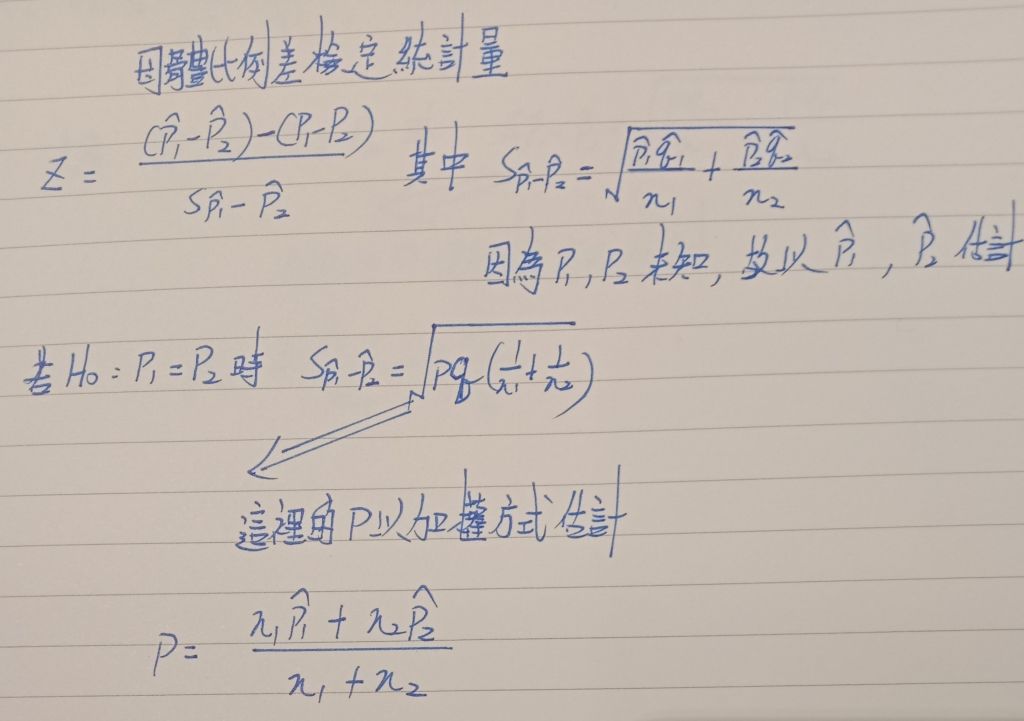 母體比例差檢定統計量
Z = \frac{(\hat{P}_1-\hat{P}_2)-(P_1-P_2)}{S_{\hat{P}_1-\hat{P}_2}} 其中 S_{\hat{P}_1-\hat{P}_2} = \sqrt{\frac{\hat{P}_1\hat{q}_1}{n_1}+\frac{\hat{P}_2\hat{q}_2}{n_2}}
因為 P_1, P_2 未知, 故以 \hat{P}_1, \hat{P}_2 估計
若 H_0: P_1 = P_2 時 S_{\hat{P}_1-\hat{P}_2} = \sqrt{pq(\frac{1}{n_1}+\frac{1}{n_2})}
這裡的 P 以加權方式估計
P = \frac{n_1\hat{P}_1+n_2\hat{P}_2}{n_1+n_2}